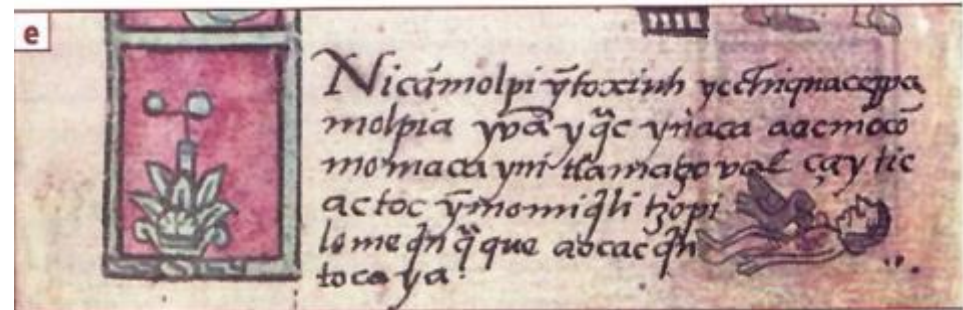 e
Nicã molpi ỹ toxiuh yc chiquacẽpa
molpia yvã y q̃c ynaca aacmo cõ
momaca yni tlamaҫoval ҫaytic
actoc ỹ momiq̃li tzopi
lome q̃n q̃que aocac q̃n
tocaya